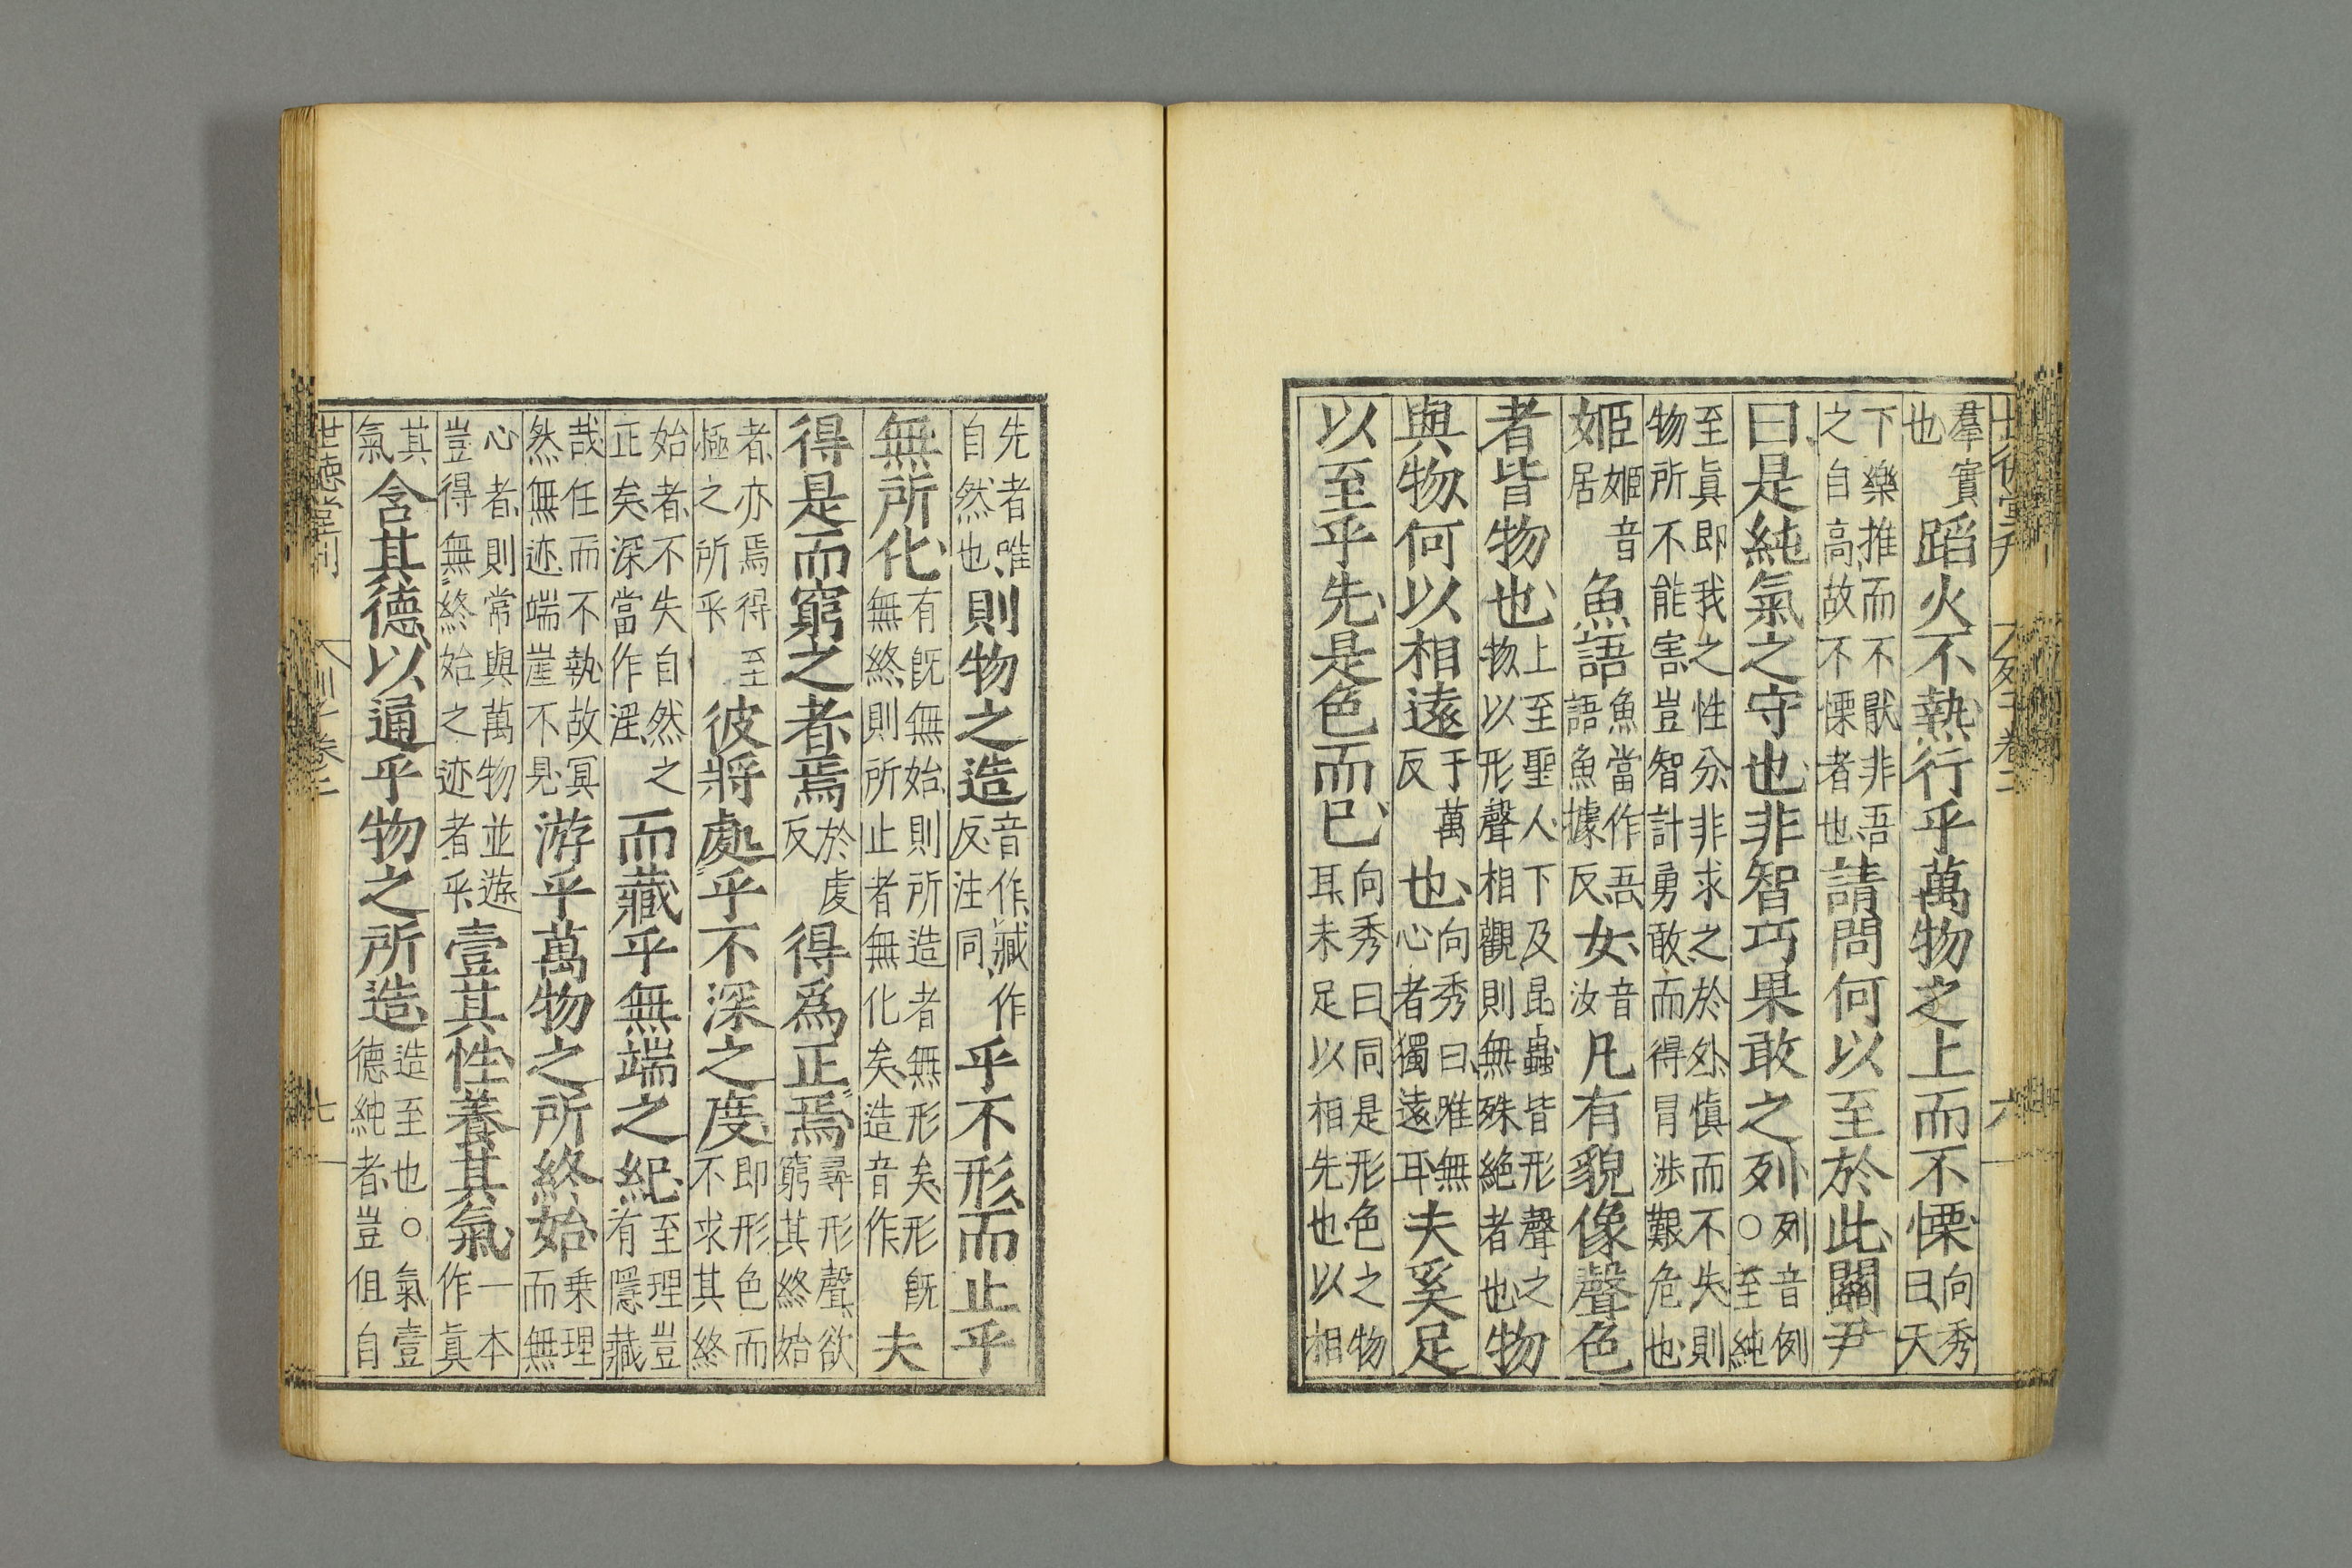 世德堂刊 列子卷二 六
羣實也蹈火不熱行乎萬物之上而不慄向秀曰天
下樂推而不厭非吾之自高故不慄者也請問何以至於此關尹
曰是純氣之守也非智巧果敢之列列音例○至純
至眞即我之性分非求之於外慎而不失則物所不能害豈智計勇敢而得冒涉艱危也
姬姬音居魚語魚當作吾語魚據反女音汝凡有貌像聲色
者皆物也上至聖人下及昆蟲皆形聲之物以形聲相觀則無殊絶者也物
與物何以相遠于萬反也向秀曰唯無心者獨遠耳夫奚足
以至乎先是色而已向秀曰同是形色之物耳未足以相先也以相
先者唯自然也則物之造音作臧作反注同乎不形而止乎
無所化有旣無始則所造者無形矣形旣無終則所止者無化矣造音作夫
得是而窮之者焉於虔反得爲正焉尋形聲欲窮其終始
者亦焉得至極之所乎彼將處乎不深之度即形色而不求其終
始者不失自然之正矣深當作淫而藏乎無端之紀至理豈有隱藏
哉任而不執故冥然無迹端崖不見游乎萬物之所終始乗理而無
心者則常與萬物並遊豈得無終始之迹者乎壹其性養其氣一本作眞
其氣含其德以通乎物之所造造至也○氣壹德純者豈伹自
世德堂刊 列子卷二 七